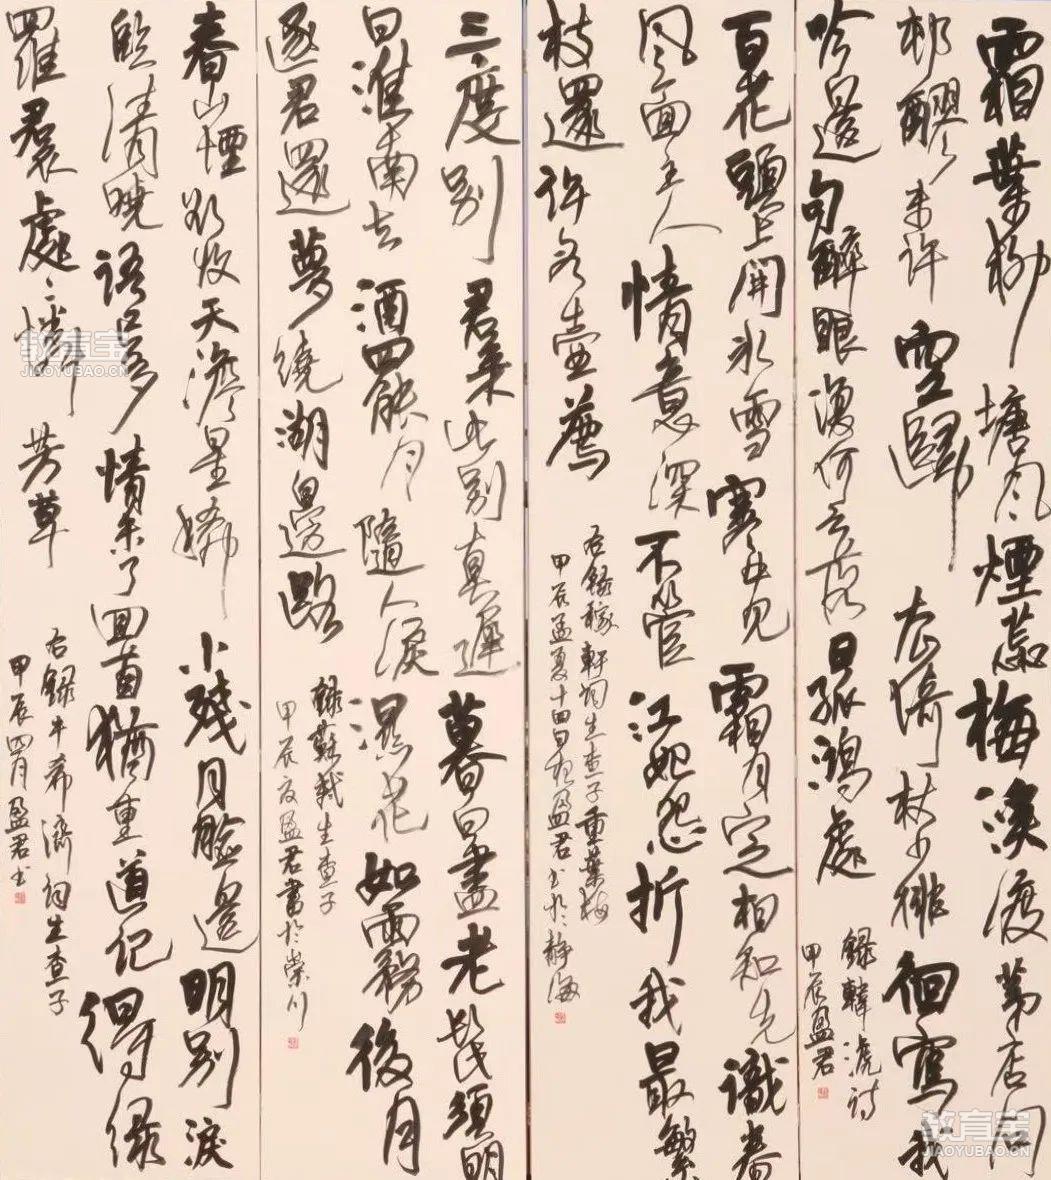 霜葉柳塘風煙蕊梅溪渡茅店問
邨醪々未許空歸去倚杖少徘徊寫我
吟邊句醉眼漫何之落日孤鴻處
録韓淲詩
甲辰盈君
百花頭上開冰雪寒中見霜月定相知先識春
風面主人情意深不管江妃怨折我最繁
枝還許冰壺薦
右録稼軒詞生查子重葉梅
甲辰孟夏十四日盈君書於静海
三度別君来此別真遲暮白盡老髭須明
日淮南去酒罷月隨人淚濕花如雨霧後月
逐君還夢繞湖邊路
録蘇軾生查子
甲辰夏盈君書於崇川
春山煙欲收天澹星稀小殘月臉邊明別淚
臨清曉語已多情未了回首猶重道記得緑
羅裙處々憐芳草
右録牛希濟詞生查子
甲辰四月盈君書
教育宝
JIAOYUBAO.CN
教育宝
JIAOYUBAO.CN